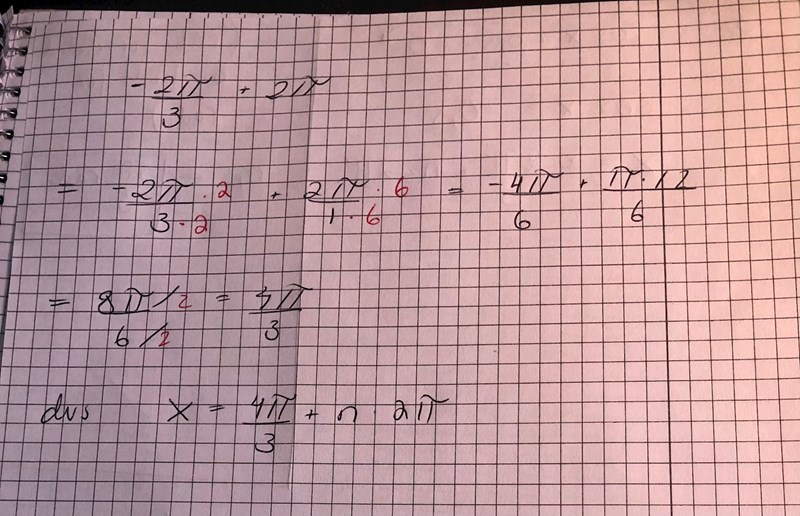 -2π/3 + 2π
= -2π·2/3·2 + 2π·6/1·6 = -4π/6 + π·12/6
= 8π/2/6/2 = 4π/3
dvs x = 4π/3 + n · 2π